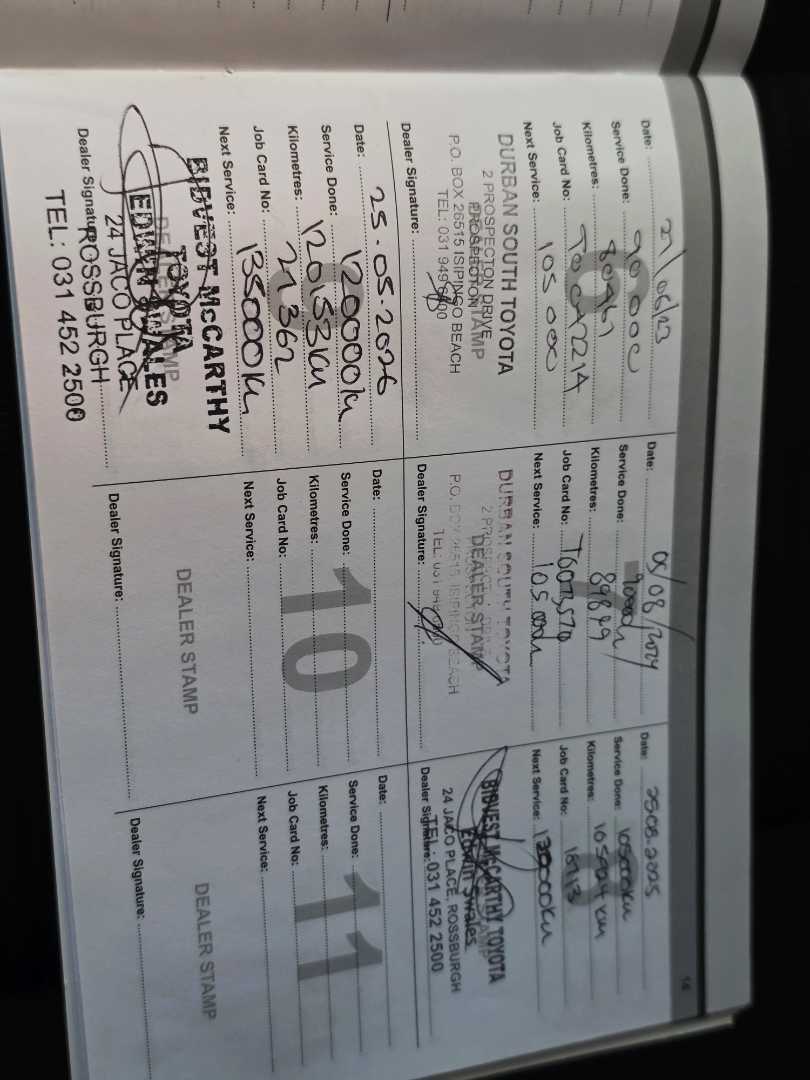 14
Date: 27/06/23
Service Done: 90 000
Kilometres:
Job Card No:
Next Service: 105 000
6
DURBAN SOUTH TOYOTA
2 PROSPECTON DRIVE
PROSPECTON
P.O. BOX 26515 ISIPINGO BEACH
TEL: 031 949
Dealer Signature:
Date: 05/08/2024
Service Done: 90000
Kilometres: 89899
Job Card No:
Next Service: 105 000km
DURBAN SOUTH TOYOTA
DEALER STAMP
P.O. BOX 26515 ISIPINGO BEACH
Dealer Signature:
Date: 2508.2025
Service Done: 105000km
Kilometres:
Job Card No:
Next Service: 120000km
BIDVEST McCARTHY TOYOTA
Edwin Swales
24 JACO PLACE, ROSSBURGH
TEL: 031 452 2500
Dealer Signature:
Date: 25.05.2026
Service Done: 120000km
Kilometres: 120153km
Job Card No: 21362
Next Service: 135000km
BIDVEST McCARTHY
TOYOTA
EDWIN SWALES
24 JACO PLACE
Dealer Signature:
ROSSBURGH
TEL: 031 452 2500
10
Date:
Service Done:
Kilometres:
Job Card No:
Next Service:
DEALER STAMP
Dealer Signature:
11
Date:
Service Done:
Kilometres:
Job Card No:
Next Service:
DEALER STAMP
Dealer Signature: